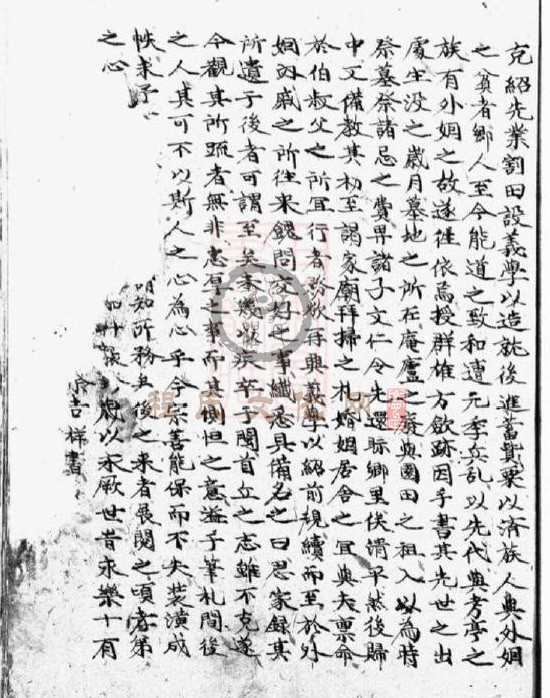 克紹先業割田設義學以造就後進蓄其粟以濟族人與外姻
之貧者鄉人至今能道之致和遭元季兵亂以先代與考亭之
族有外姻之故遂徃依焉授群雄方斂跡因手書其先世之出
處生没之歲月墓地之所在庵廬之與園田之租入以為時
祭墓祭諸忌之費畀諸子文仁令先還眎鄉里俟清平然後歸
中又備教其初至謁家廟拜掃之礼婚姻居舍之宜與夫禀命
於伯叔父之所宜行者再興義學以紹前規續而至於外
姻戚之所徃来餽問交好之事纖悉具備名之曰忍家録其
所遺于後者可謂至矣柰幾以疾卒于閩首丘之志雖不克遂
今觀其所疏者無非忠厚之事而其惻怛之意溢乎筆札間後
之人其可不以斯人之心為心乎今宗善能保而不失裝潢成
帙来予
之心
明知所務且後之来者展閱之頃者第
以永厥世昔永樂十有
吉祥書